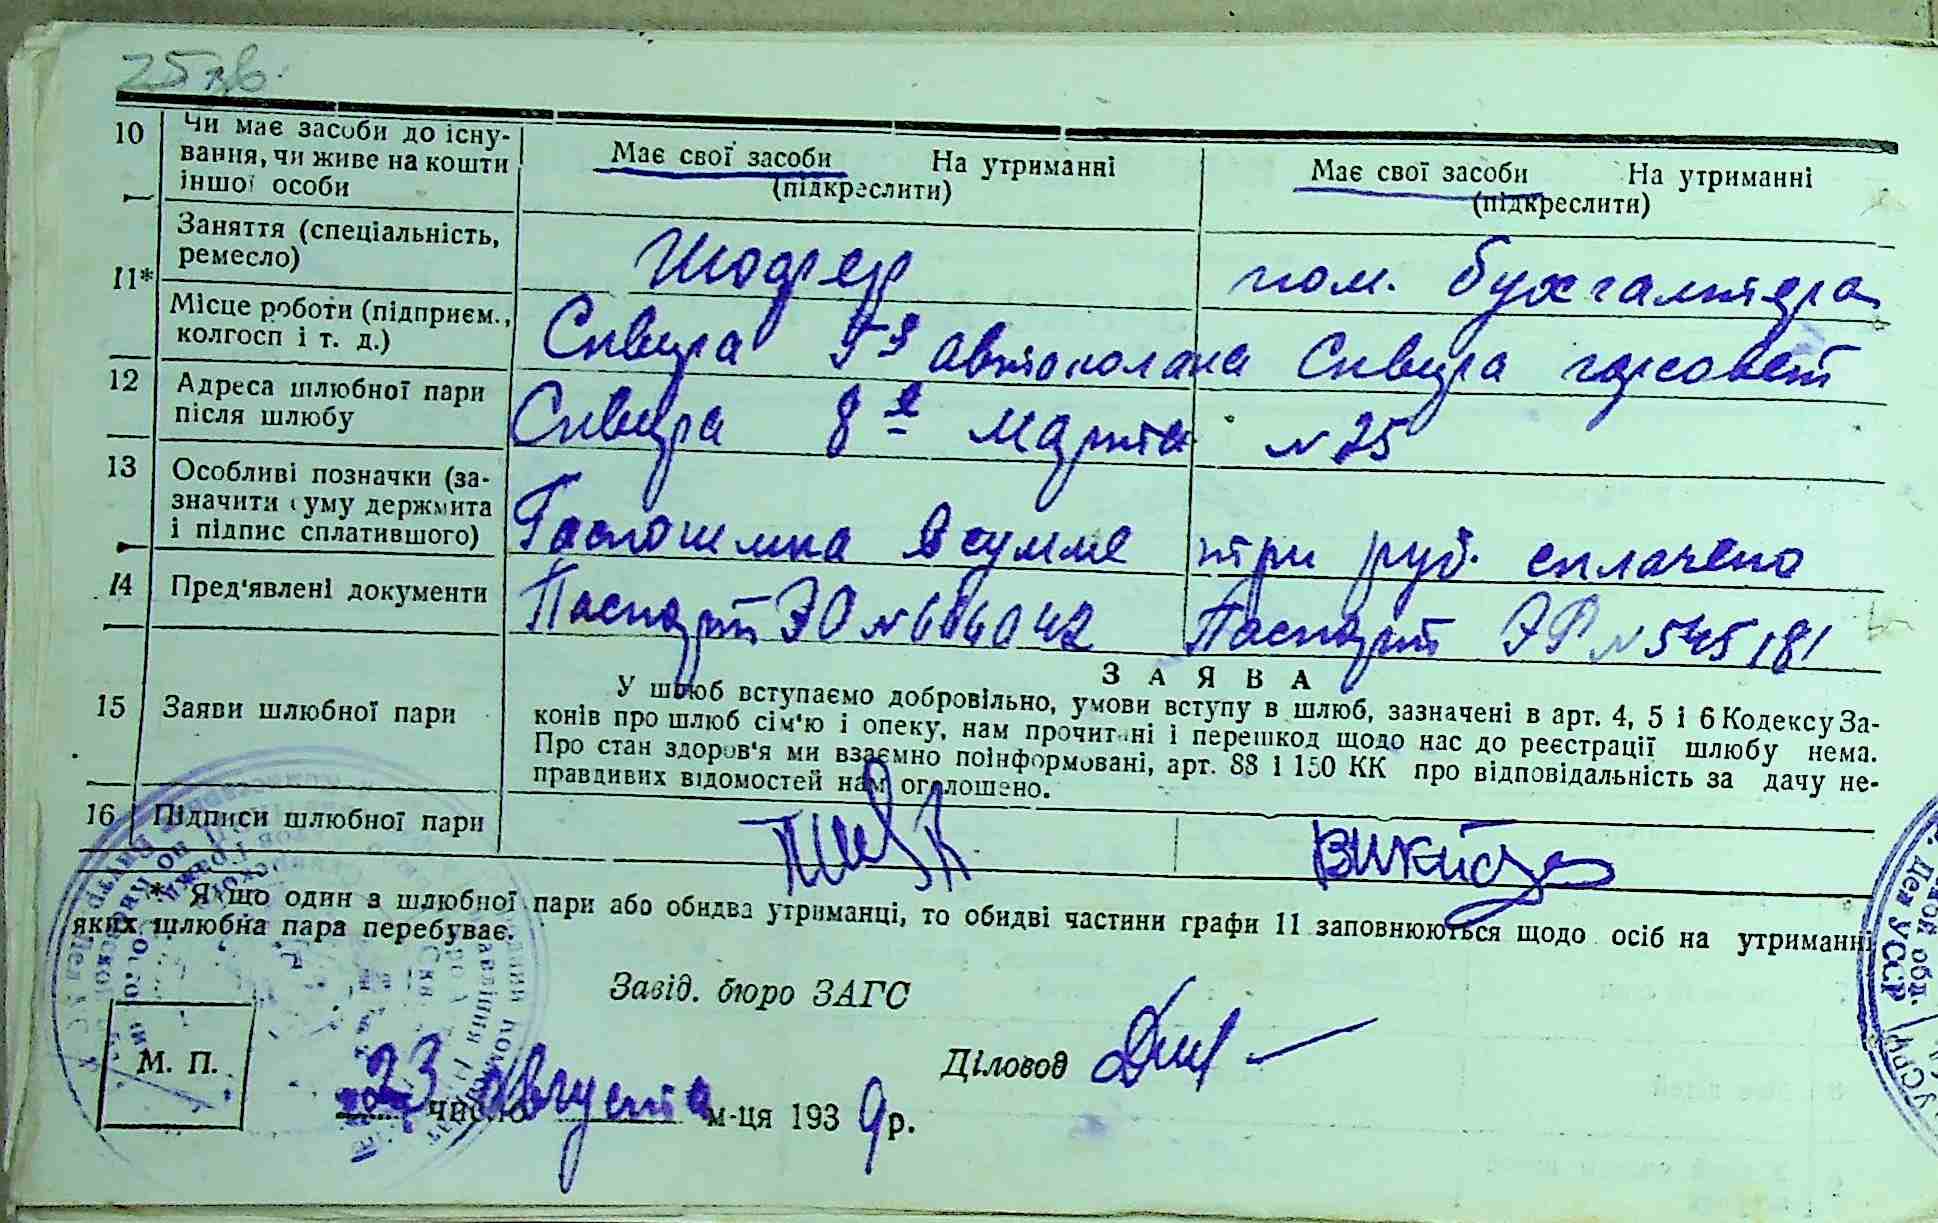 25 зв.
10 Чи має засоби до існу-
вання, чи живе на кошти
іншої особи
Має свої засоби На утриманні
(підкреслити)
Має свої засоби На утриманні
(підкреслити)
11* Заняття (спеціальність,
ремесло)
Шофер
пом. бухгалтера
Місце роботи (підприєм.,
колгосп і т. д.)
Сквира автоколона
Сквира горсовет
12 Адреса шлюбної пари
після шлюбу
Сквира 8е Марта № 25
13 Особливі позначки (за-
значити суму держмита
і підпис сплатившого)
Госпошлина в сумме три руб. сплачено
14 Пред'явлені документи
Паспорт ЭО №
Паспорт ЭФ № 545181
15 Заяви шлюбної пари
ЗАЯВА
У шлюб вступаємо добровільно, умови вступу в шлюб, зазначені в арт. 4, 5 і 6 Кодексу За-
конів про шлюб сім'ю і опеку, нам прочитані і перешкод щодо нас до реєстрації шлюбу нема.
Про стан здоров'я ми взаємно поінформовані, арт. 88 і 150 КК про відповідальність за дачу не-
правдивих відомостей нам оголошено.
16 Підписи шлюбної пари
* Якщо один з шлюбної пари або обидва утриманці, то обидві частини графи 11 заповнюються щодо осіб на утриманні
яких шлюбна пара перебуває.
Завід. бюро ЗАГС
М. П.
Діловод
23 число августа м-ця 1939 р.